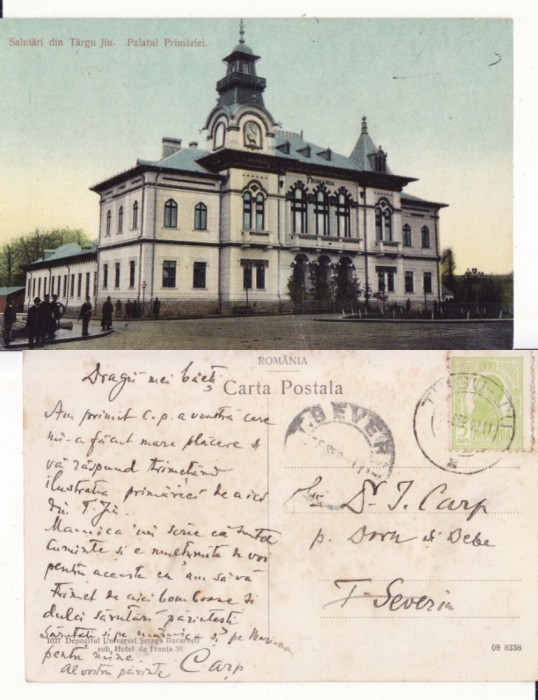 Salutări din Târgu Jiu. Palatul Primăriei.
PRIMARIA
ROMÂNIA
Carta Postala
Dragii mei băeți
Am primit C.p. a voastră care
mi-a făcut mare plăcere și
vă răspund trimețând
ilustrația primăriei de aici
din T. Jiu
Mămica 'mi scrie că sunteți
cuminte și e mulțumită de voi
pentru aceasta am să vă
trimet de aici bomboane și
dulci sărutări părintești
Sărutați și pe mămica și pe
pentru mine.
Al vostru părinte Carp
T. SEVERIN
SEP
TÂRGU-JIU
SEP 11
5
Dr. I. Carp
p. Doru și Bebe
T-Severin
1027 Depozitul Universal Șaraga București
sub Hotel de Franța 30
09 8338